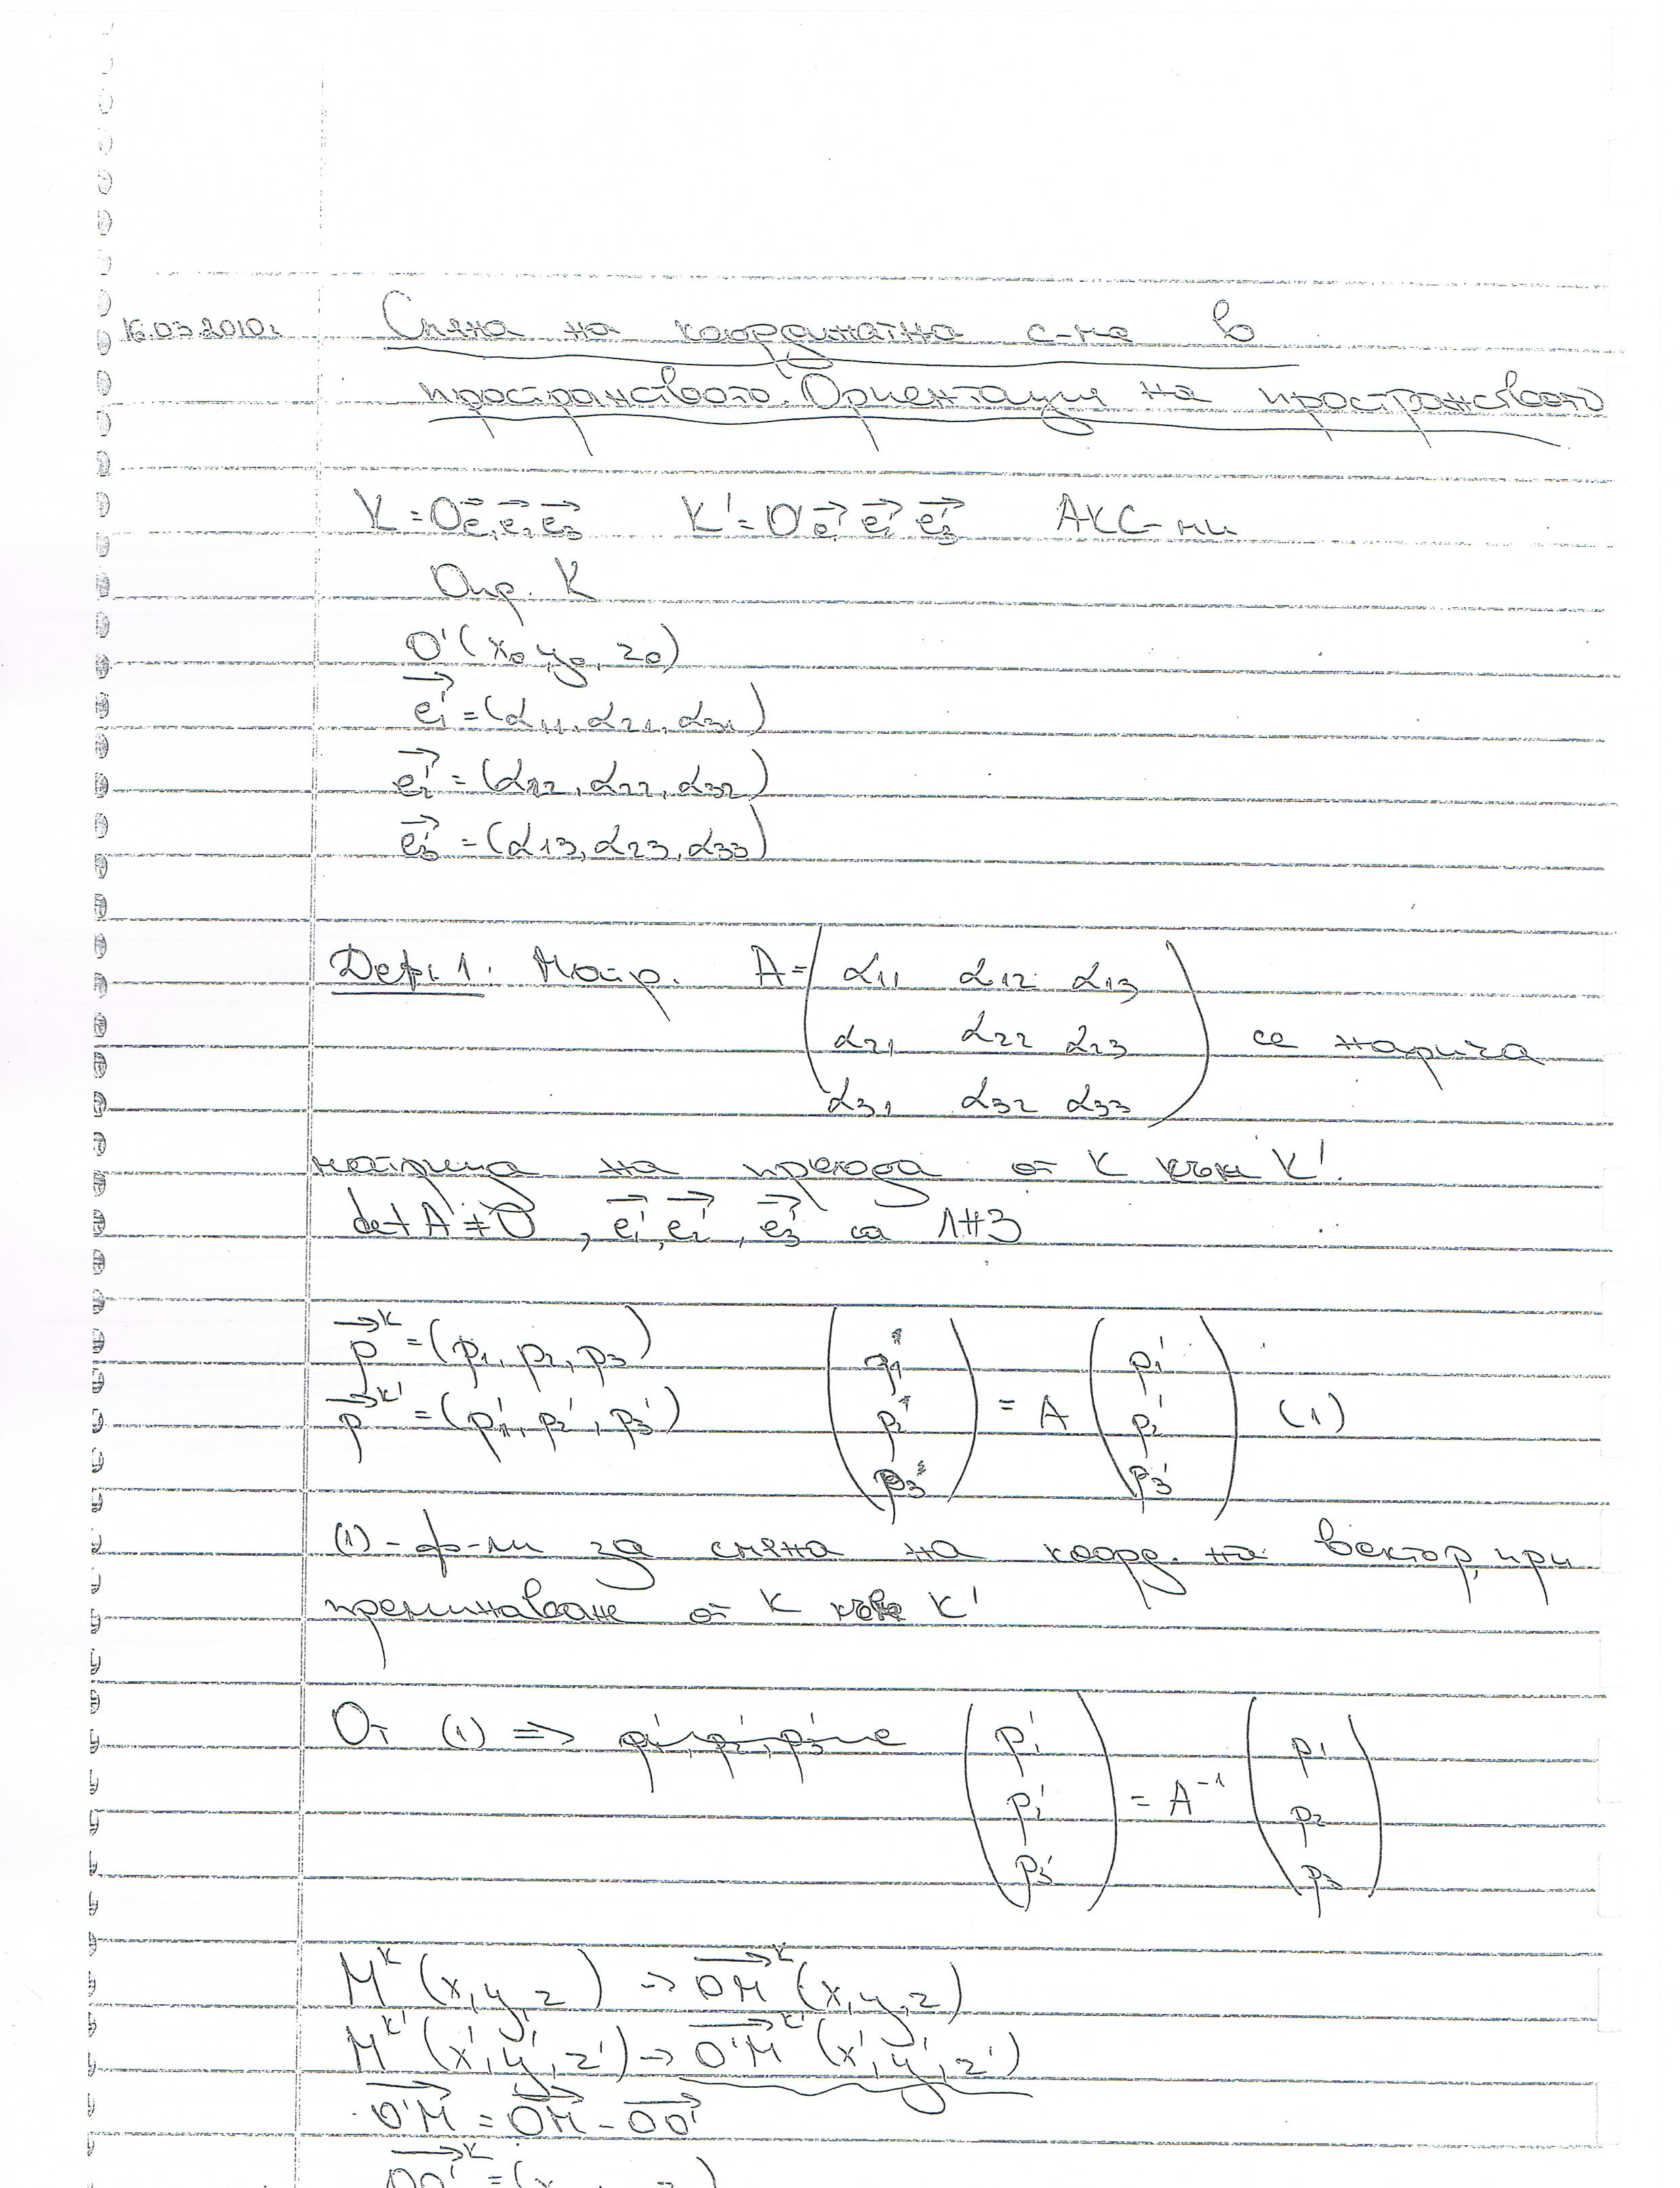 16.03.2010г. Смяна на координатна с-ма в
пространството. Ориентация на пространството
K = O e₁⃗ e₂⃗ e₃⃗   K' = O' e₁'⃗ e₂'⃗ e₃'⃗   АКС-ми
Опр. K
O'(x₀, y₀, z₀)
e₁'⃗ = (α₁₁, α₂₁, α₃₁)
e₂'⃗ = (α₁₂, α₂₂, α₃₂)
e₃'⃗ = (α₁₃, α₂₃, α₃₃)
Деф. 1: Матр. A = ( α₁₁ α₁₂ α₁₃
α₂₁ α₂₂ α₂₃ се нарича
α₃₁ α₃₂ α₃₃ )
матрица на прехода от K към K'.
det A ≠ 0, e₁'⃗, e₂'⃗, e₃'⃗ са ЛНЗ
p⃗ᴷ = (p₁, p₂, p₃)   ( p₁ p₂ p₃ ) = A ( p₁' p₂' p₃' ) (1)
p⃗ᴷ' = (p₁', p₂', p₃')
(1) - ф-ли за смяна на коорд. на вектор, при
преминаване от K към K'
От (1) ⇒ ( p₁' p₂' p₃' ) = A⁻¹ ( p₁ p₂ p₃ )
Mᴷ (x, y, z) → OM⃗ᴷ (x, y, z)
Mᴷ' (x', y', z') → O'M⃗ᴷ' (x', y', z')
O'M⃗ = OM⃗ - OO'⃗
OO'⃗ᴷ = (x